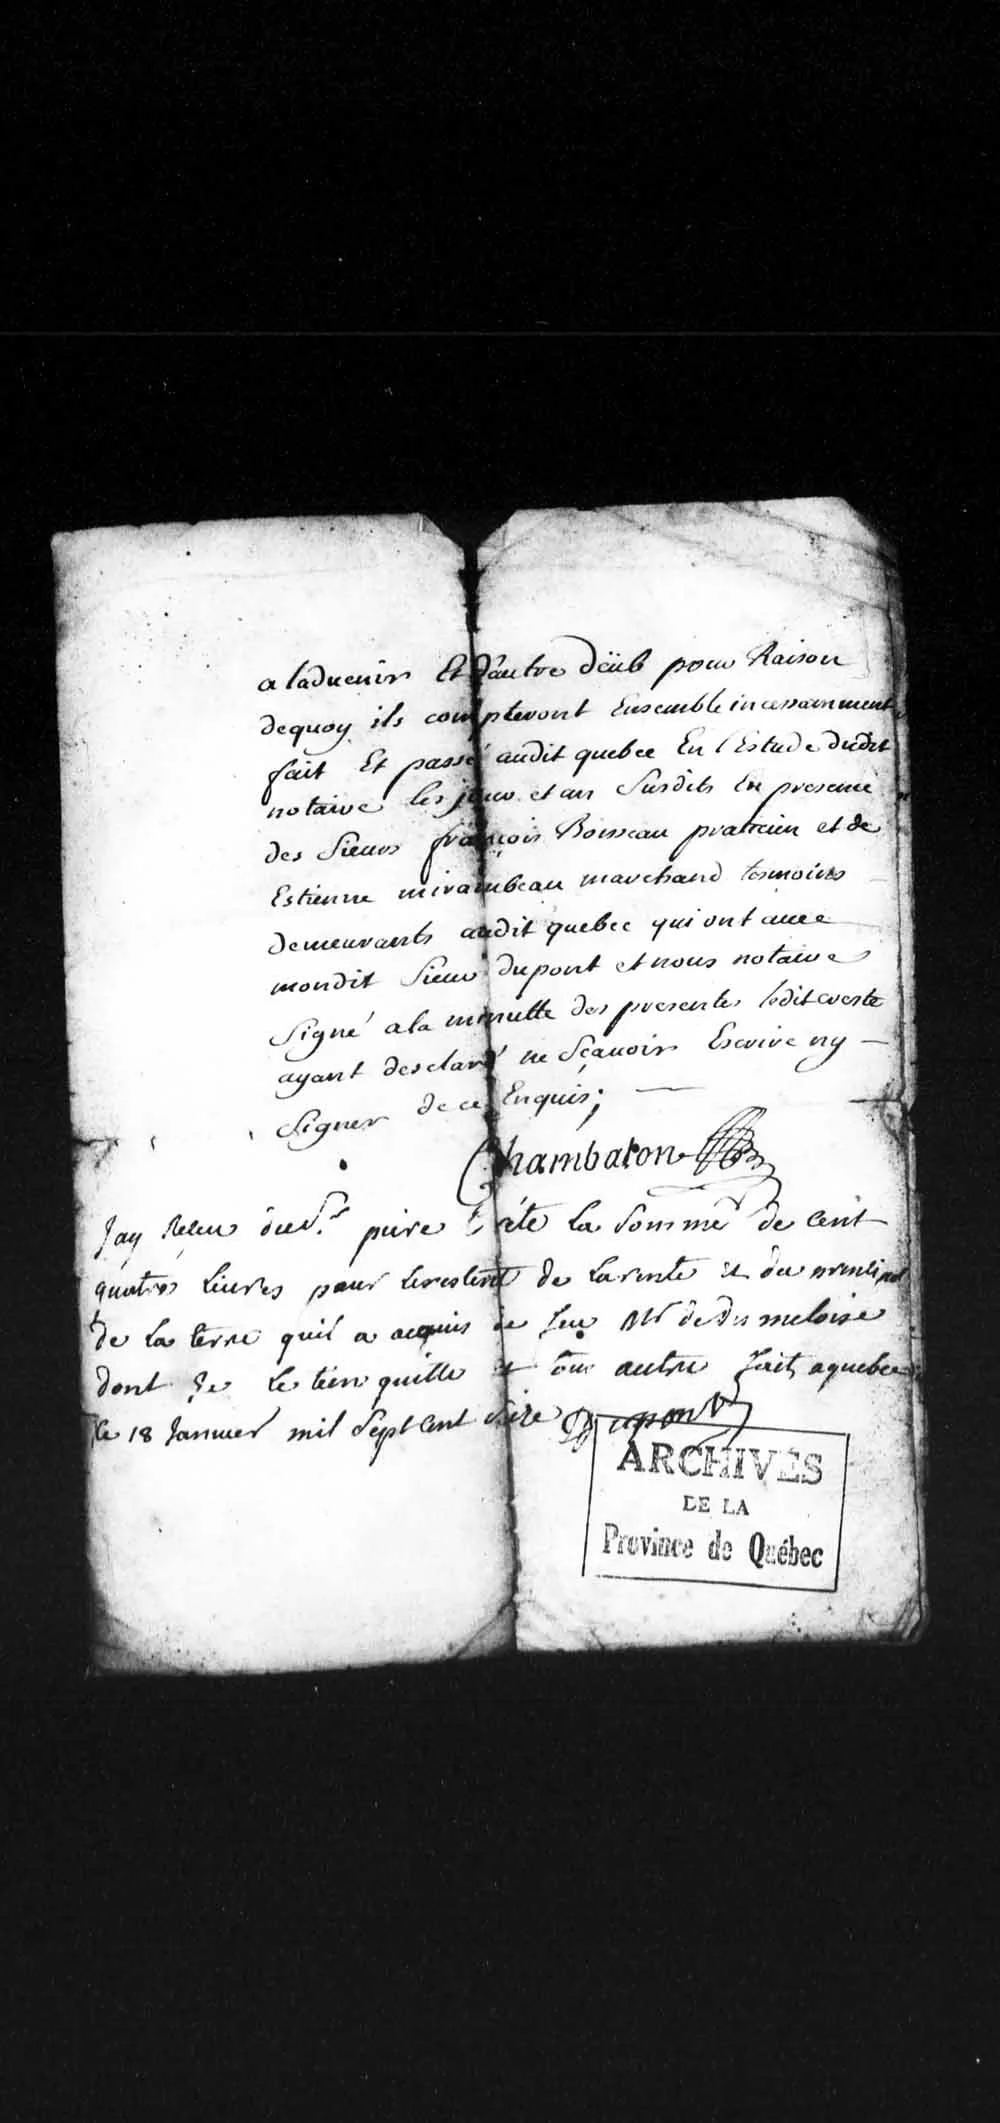 a laduenir Et d'autre deub pour Raison
dequoy ils compteront Ensemble incessamment
fait Et passé audit quebec En l'Estude dudit
notaire les jour et an susdits En presence
des Sieurs françois Boisseau praticien et de
Estienne mirambeau marchand tesmoins
demeurants audit quebec qui ont auec
mondit Sieur dupont et nous notaire
Signé a la minutte des presentes ledit creste
ayant desclaré ne sçauoir Escrire ny
Signer de ce Enquis;
Chambalon
Jay Receu du Sr. piere Crete la somme de Cent
quatre liures pour le restent de la rente et du principal
de la terre quil a acquis de feu Mr de Des meloise
dont Je le tien quitte et tous autre fait a quebec
le 18 Januier mil Sept Cent Seize Dupont
ARCHIVES
DE LA
Province de Québec